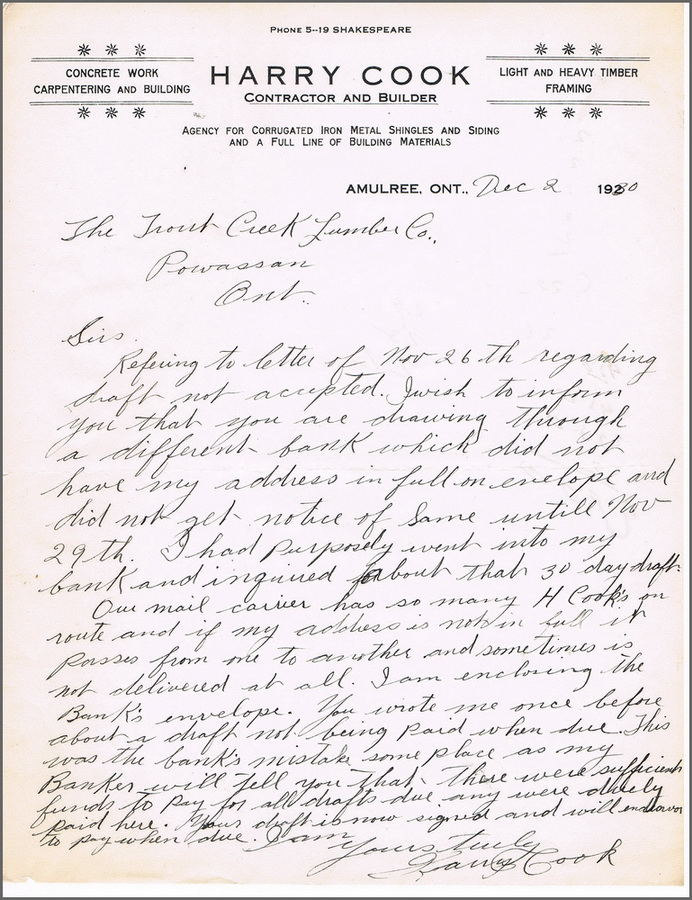 PHONE 5--19 SHAKESPEARE
CONCRETE WORK
CARPENTERING AND BUILDING
HARRY COOK
CONTRACTOR AND BUILDER
LIGHT AND HEAVY TIMBER
FRAMING
AGENCY FOR CORRUGATED IRON METAL SHINGLES AND SIDING
AND A FULL LINE OF BUILDING MATERIALS
AMULREE, ONT., Dec 2 1930
The Trout Creek Lumber Co.,
Powassan
Ont.
Sirs.
Refering to letter of Nov 26th regarding
draft not accepted. I wish to inform
you that you are drawing through
a different bank which did not
have my address in full on envelope and
did not get notice of same untill Nov
29th. I had purposely went into my
bank and inquired about that 30 day draft.
Our mail carrier has so many H Cook's on
route and if my address is not in full it
passes from one to another and sometimes is
not delivered at all. I am enclosing the
Bank's envelope. You wrote me once before
about a draft not being paid when due. This
was the bank's mistake some place as my
Banker will tell you that there were sufficient
funds to pay for all drafts due any were duely
paid here. Your draft is now signed and will endeavor
to pay when due. I am
Yours truly
Harry Cook